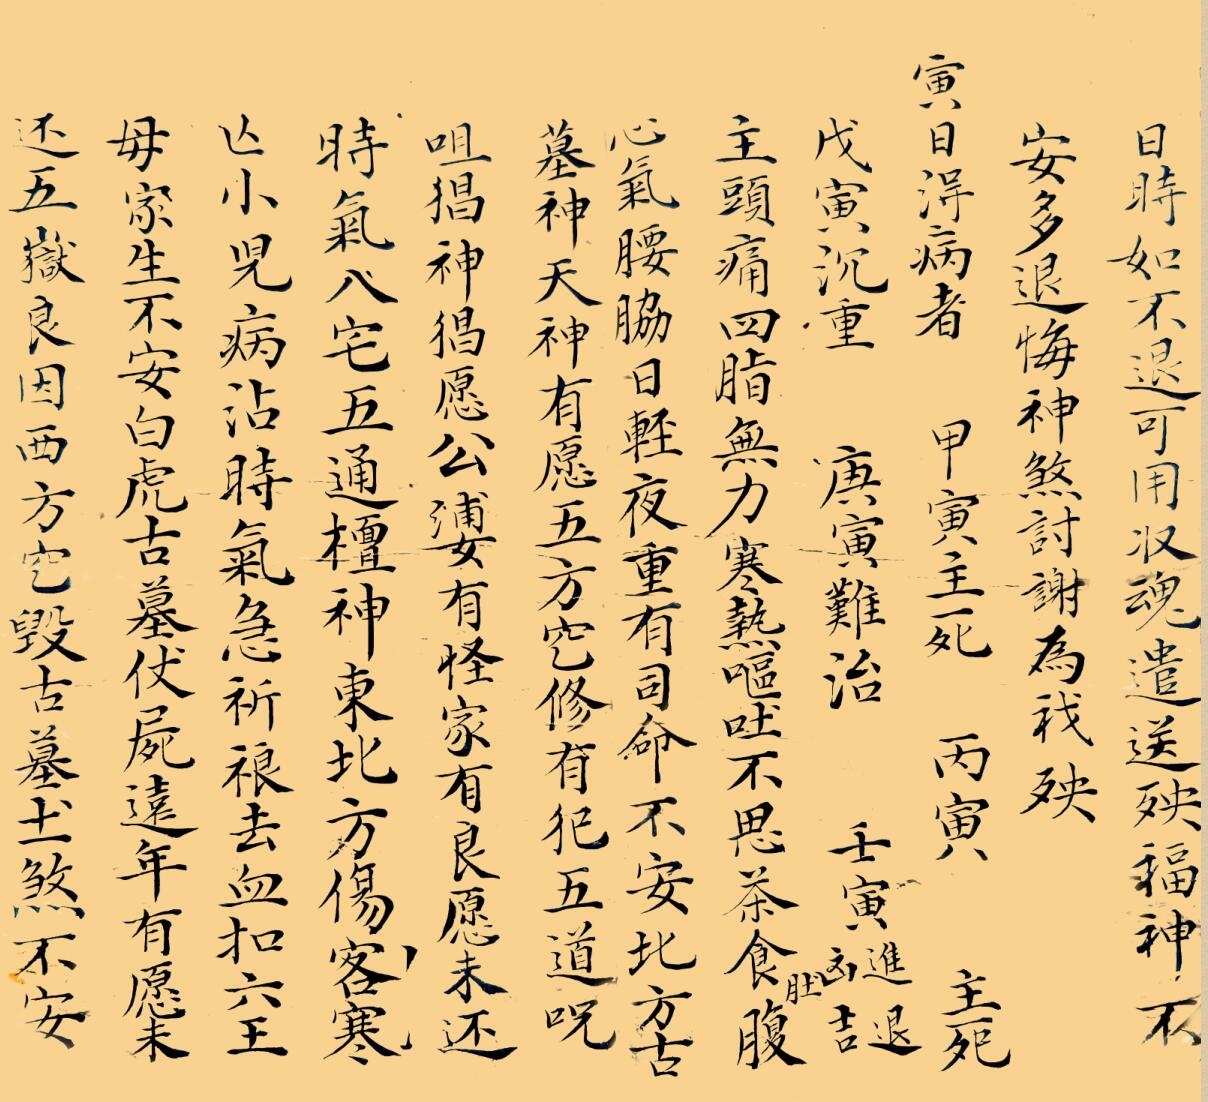 日時如不退可用収魂遣送殃福神不
安多退悔神煞討謝為我殃
寅日淂病者 甲寅主死 丙寅 主死
戊寅沉重 庚寅難治 壬寅進退凶吉
主頭痛四脂無力寒熱嘔吐不思茶食腹肚
心氣腰脇日輕夜重有司命不安北方古
墓神天神有愿五方空修有犯五道呪
咀猖神猖愿公婆有怪家有良愿未还
時氣八宅五通檀神東北方傷客寒
亾小児病沾時氣急祈禳去血扣六王
母家生不安白虎古墓伏屍遠年有愿未
还五嶽良因西方空毀古墓土煞不安